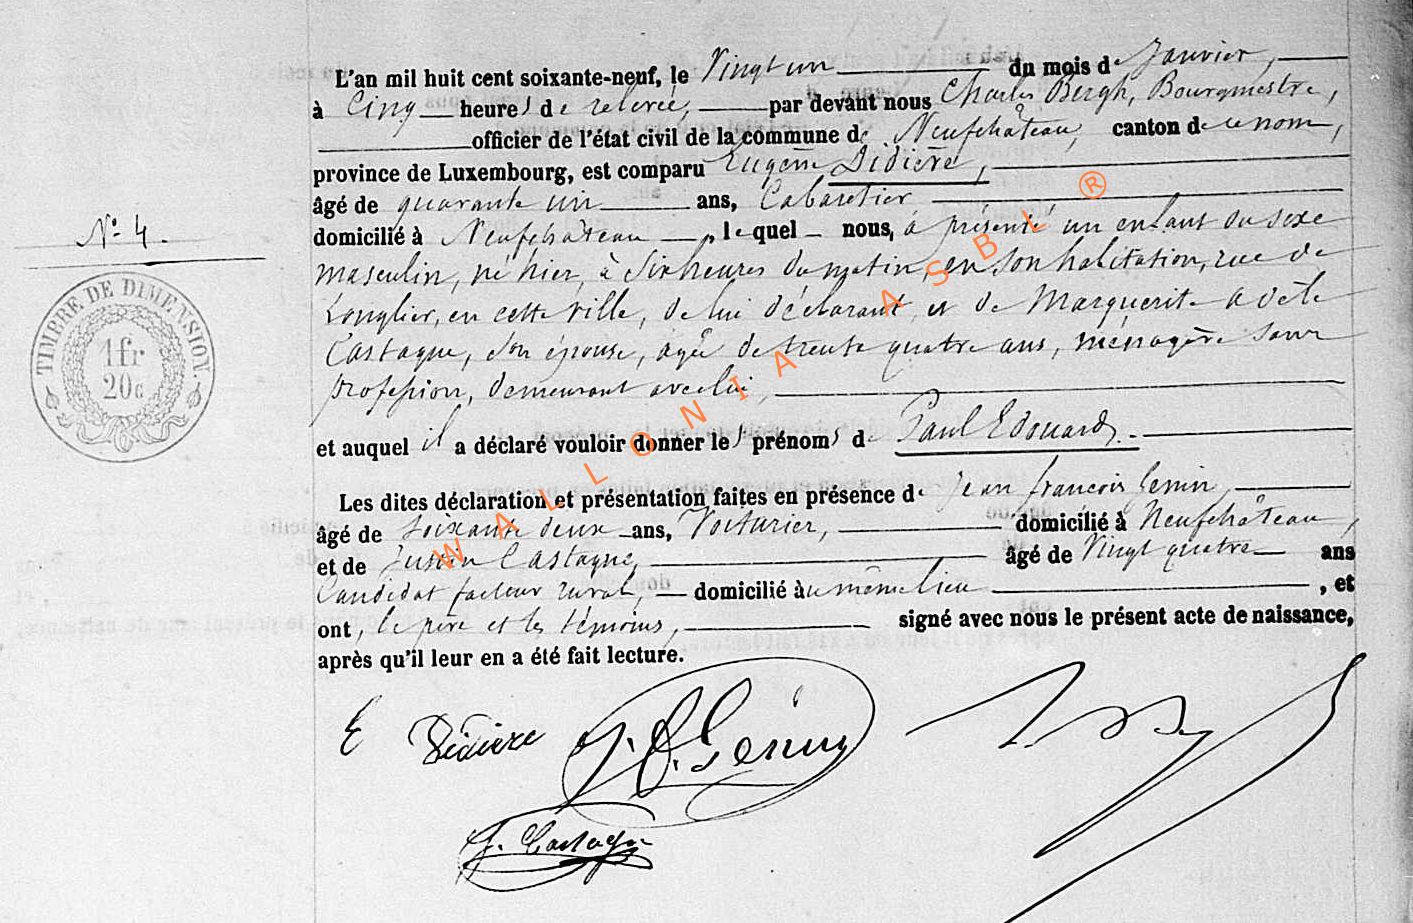 L'an mil huit cent soixante-neuf, le Vingt un du mois de Janvier,
à Cinq heures de relevée, par devant nous Charles Bergh, Bourgmestre,
officier de l'état civil de la commune de Neufchâteau, canton de ce nom,
province de Luxembourg, est comparu Eugène Didière,
âgé de quarante un ans, Cabaretier
domicilié à Neufchâteau, lequel nous, a présenté un enfant du sexe
Nº 4.
masculin, né hier, à Six heures du matin, en son habitation, rue de
Longlier, en cette ville, de lui déclarant, et de Marguerite Adèle
Castagne, son épouse, âgée de trente quatre ans, ménagère sans
profession, demeurant avec lui,
TIMBRE DE DIMENSION
1fr
20c
et auquel il a déclaré vouloir donner les prénoms de Paul Edouard.
Les dites déclaration et présentation faites en présence de Jean françois Genin,
âgé de soixante deux ans, Voiturier, domicilié à Neufchâteau,
et de Justin Castagne, âgé de Vingt quatre ans
Candidat facteur rural, domicilié au même lieu, et
ont, le père et les témoins, signé avec nous le présent acte de naissance,
après qu'il leur en a été fait lecture.
E Didière J. F. Genin
J. Castagne
WALLONIA ASBL ®